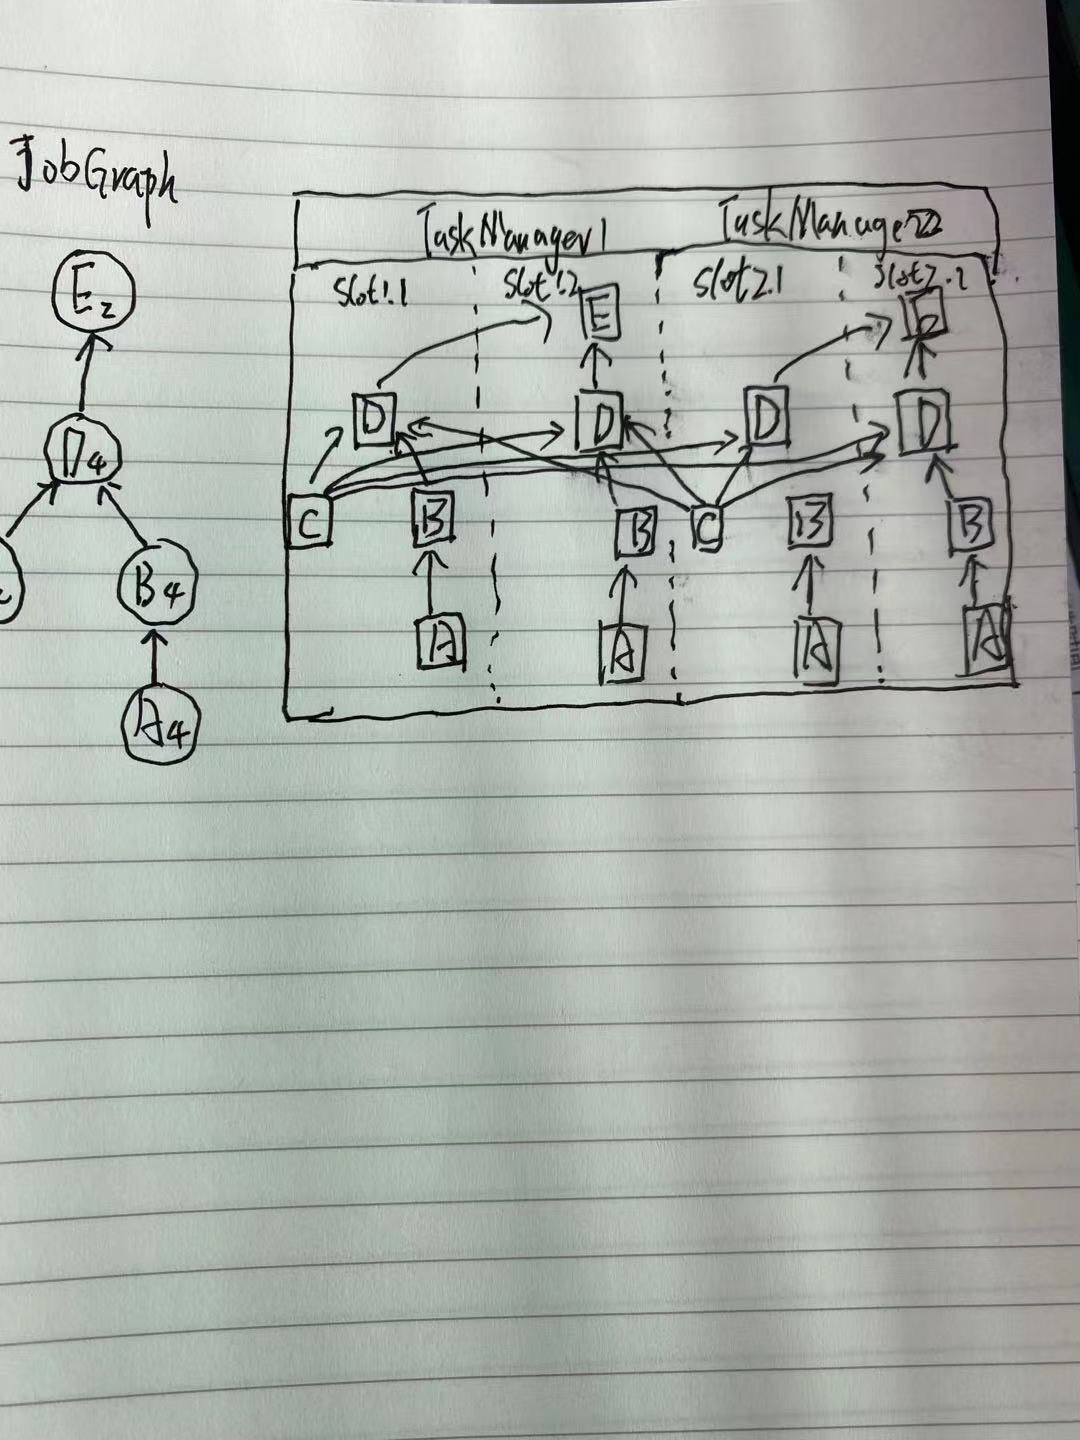 JobGraph
TaskManager1 TaskManager2
Slot1.1 Slot1.2 Slot2.1 Slot2.2
E2
E
D4
D D D D
C B B C B B
B4
A A A A
A4